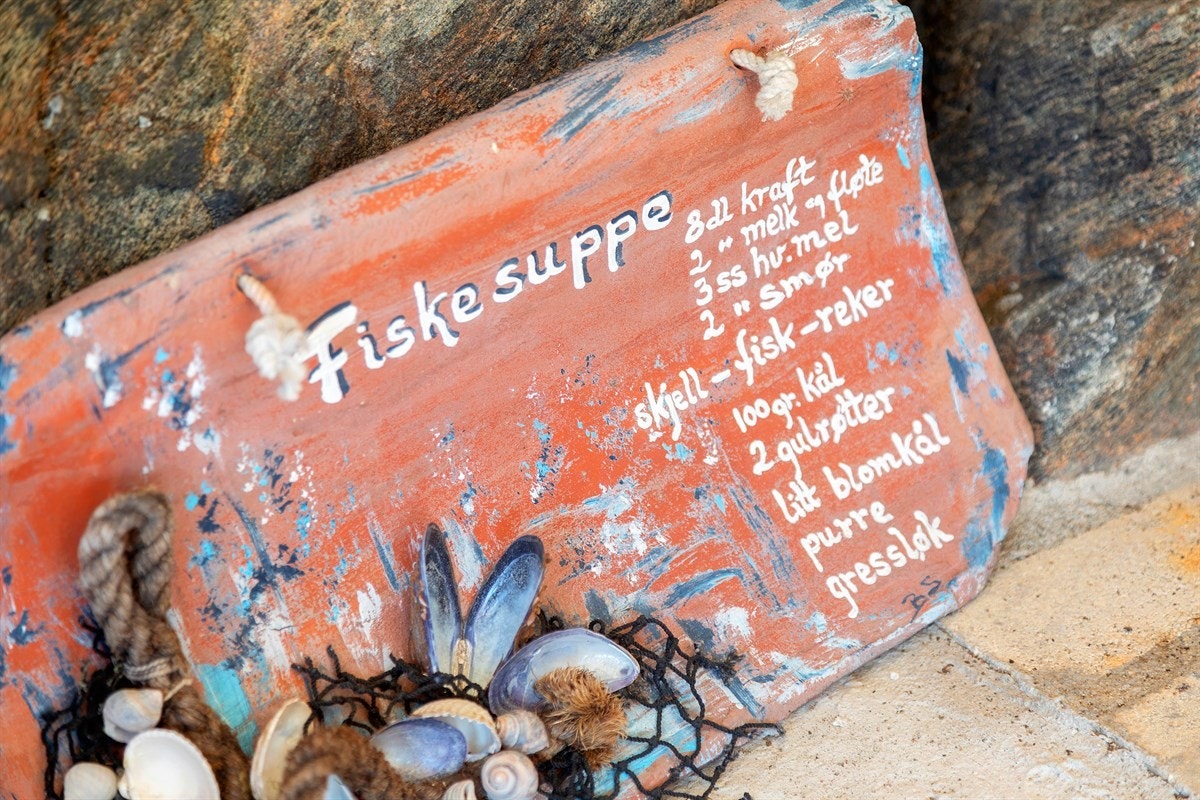 Fiskesuppe
8 dl kraft
2 " melk og fløte
3 ss hv. mel
2 " smør
skjell - fisk - reker
100 gr. kål
2 gulrøtter
litt blomkål
purre
gressløk
BS